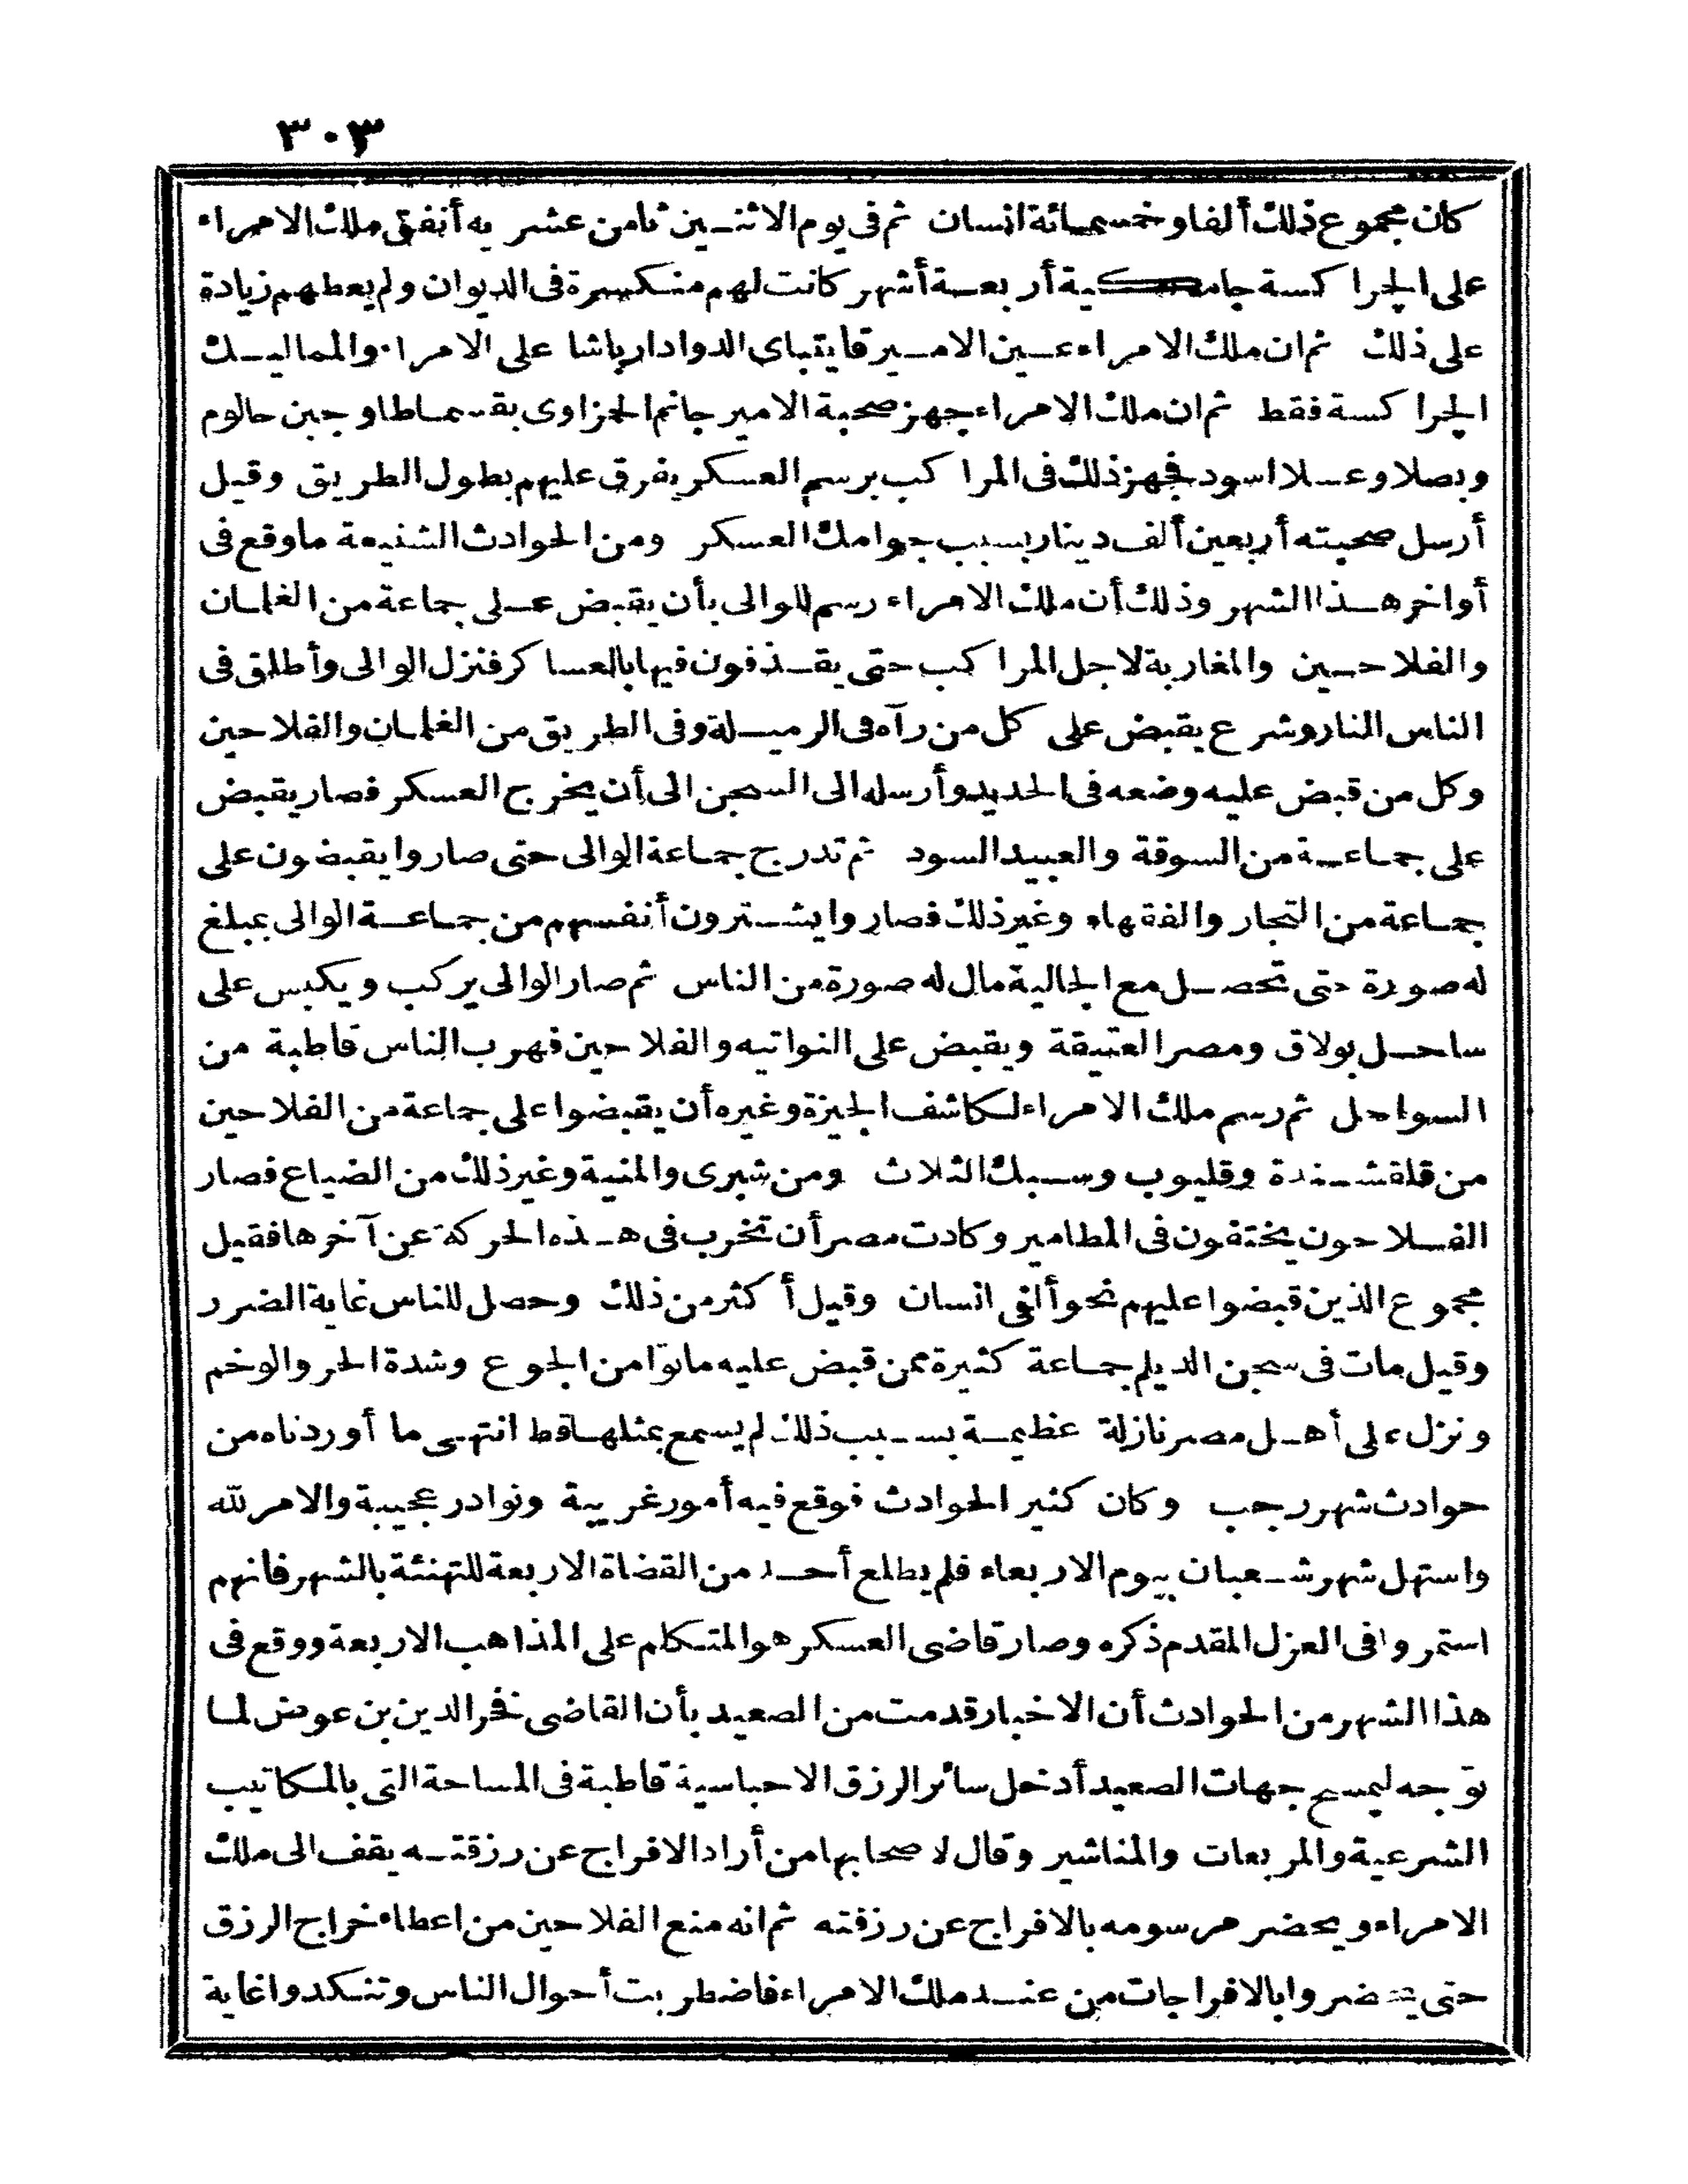 ٣٠٣
كان مجموع ذلك ألفا وخمسمائة انسان ثم فى يوم الاثنين ثامن عشريه أنفق ملك الامراء
على الجراكسة جامكية أربعة أشهر كانت لهم منكسرة فى الديوان ولم يعطهم زيادة
على ذلك ثم ان ملك الامراء عين الامير قايتباى الدوادار باشا على الامراء والمماليك
الجراكسة فقط ثم ان ملك الامراء جهز صحبة الامير جانم الحمزاوى بقسماطا وجبن حالوم
وبصلا وعسلا اسود فجهز ذلك فى المراكب برسم العسكر يفرق عليهم بطول الطريق وقيل
أرسل صحبته أربعين ألف دينار بسبب جوامك العسكر ومن الحوادث الشنيعة ما وقع فى
أواخر هذا الشهر وذلك أن ملك الامراء رسم للوالى بأن يقبض على جماعة من الغلمان
والفلاحين والمغاربة لاجل المراكب حتى يقذفون فيها بالعساكر فنزل الوالى وأطلق فى
الناس النار وشرع يقبض على كل من رآه فى الرميلة وفى الطريق من الغلمان والفلاحين
وكل من قبض عليه وضعه فى الحديد وأرسله الى السجن الى أن يخرج العسكر فصار يقبض
على جماعة من السوقة والعبيد السود ثم تدرج جماعة الوالى حتى صاروا يقبضون على
جماعة من التجار والفقهاء وغير ذلك فصاروا يشترون أنفسهم من جماعة الوالى بمبلغ
له صورة حتى تحصل مع الجالية مال له صورة من الناس ثم صار الوالى يركب ويكبس على
ساحل بولاق ومصر العتيقة ويقبض على النواتيه والفلاحين فهرب الناس قاطبة من
السواحل ثم رسم ملك الامراء لكاشف الجيزة وغيره أن يقبضوا على جماعة من الفلاحين
من قلقشندة وقليوب وسبك الثلاث ومن شبرى والمنية وغير ذلك من الضياع فصار
الفلاحون يختفون فى المطامير وكادت مصر أن تخرب فى هذه الحركة عن آخرها فقيل
مجموع الذين قبضوا عليهم نحو ألفى انسان وقيل أكثر من ذلك وحصل للناس غاية الضرر
وقيل مات فى سجن الديلم جماعة كثيرة ممن قبض عليه ماتوا من الجوع وشدة الحر والوخم
ونزل على أهل مصر نازلة عظيمة بسبب ذلك لم يسمع بمثلها قط انتهى ما أوردناه من
حوادث شهر رجب وكان كثير الحوادث فوقع فيه أمور غريبة ونوادر عجيبة والامر لله
واستهل شهر شعبان بيوم الاربعاء فلم يطلع أحد من القضاة الاربعة للتهنئة بالشهر فانهم
استمروا فى العزل المقدم ذكره وصار قاضى العسكر هو المتكلم على المذاهب الاربعة ووقع فى
هذا الشهر من الحوادث أن الاخبار قدمت من الصعيد بأن القاضى فخر الدين بن عوض لما
توجه ليمسح جهات الصعيد أدخل سائر الرزق الاحباسية قاطبة فى المساحة التى بالمكاتيب
الشرعية والمربعات والمناشير وقال لاصحابها من أراد الافراج عن رزقته يقف الى ملك
الامراء ويحضر مرسومه بالافراج عن رزقته ثم انه منع الفلاحين من اعطاء خراج الرزق
حتى يحضروا بالافراجات من عند ملك الامراء فاضطربت أحوال الناس وتنكدوا غاية